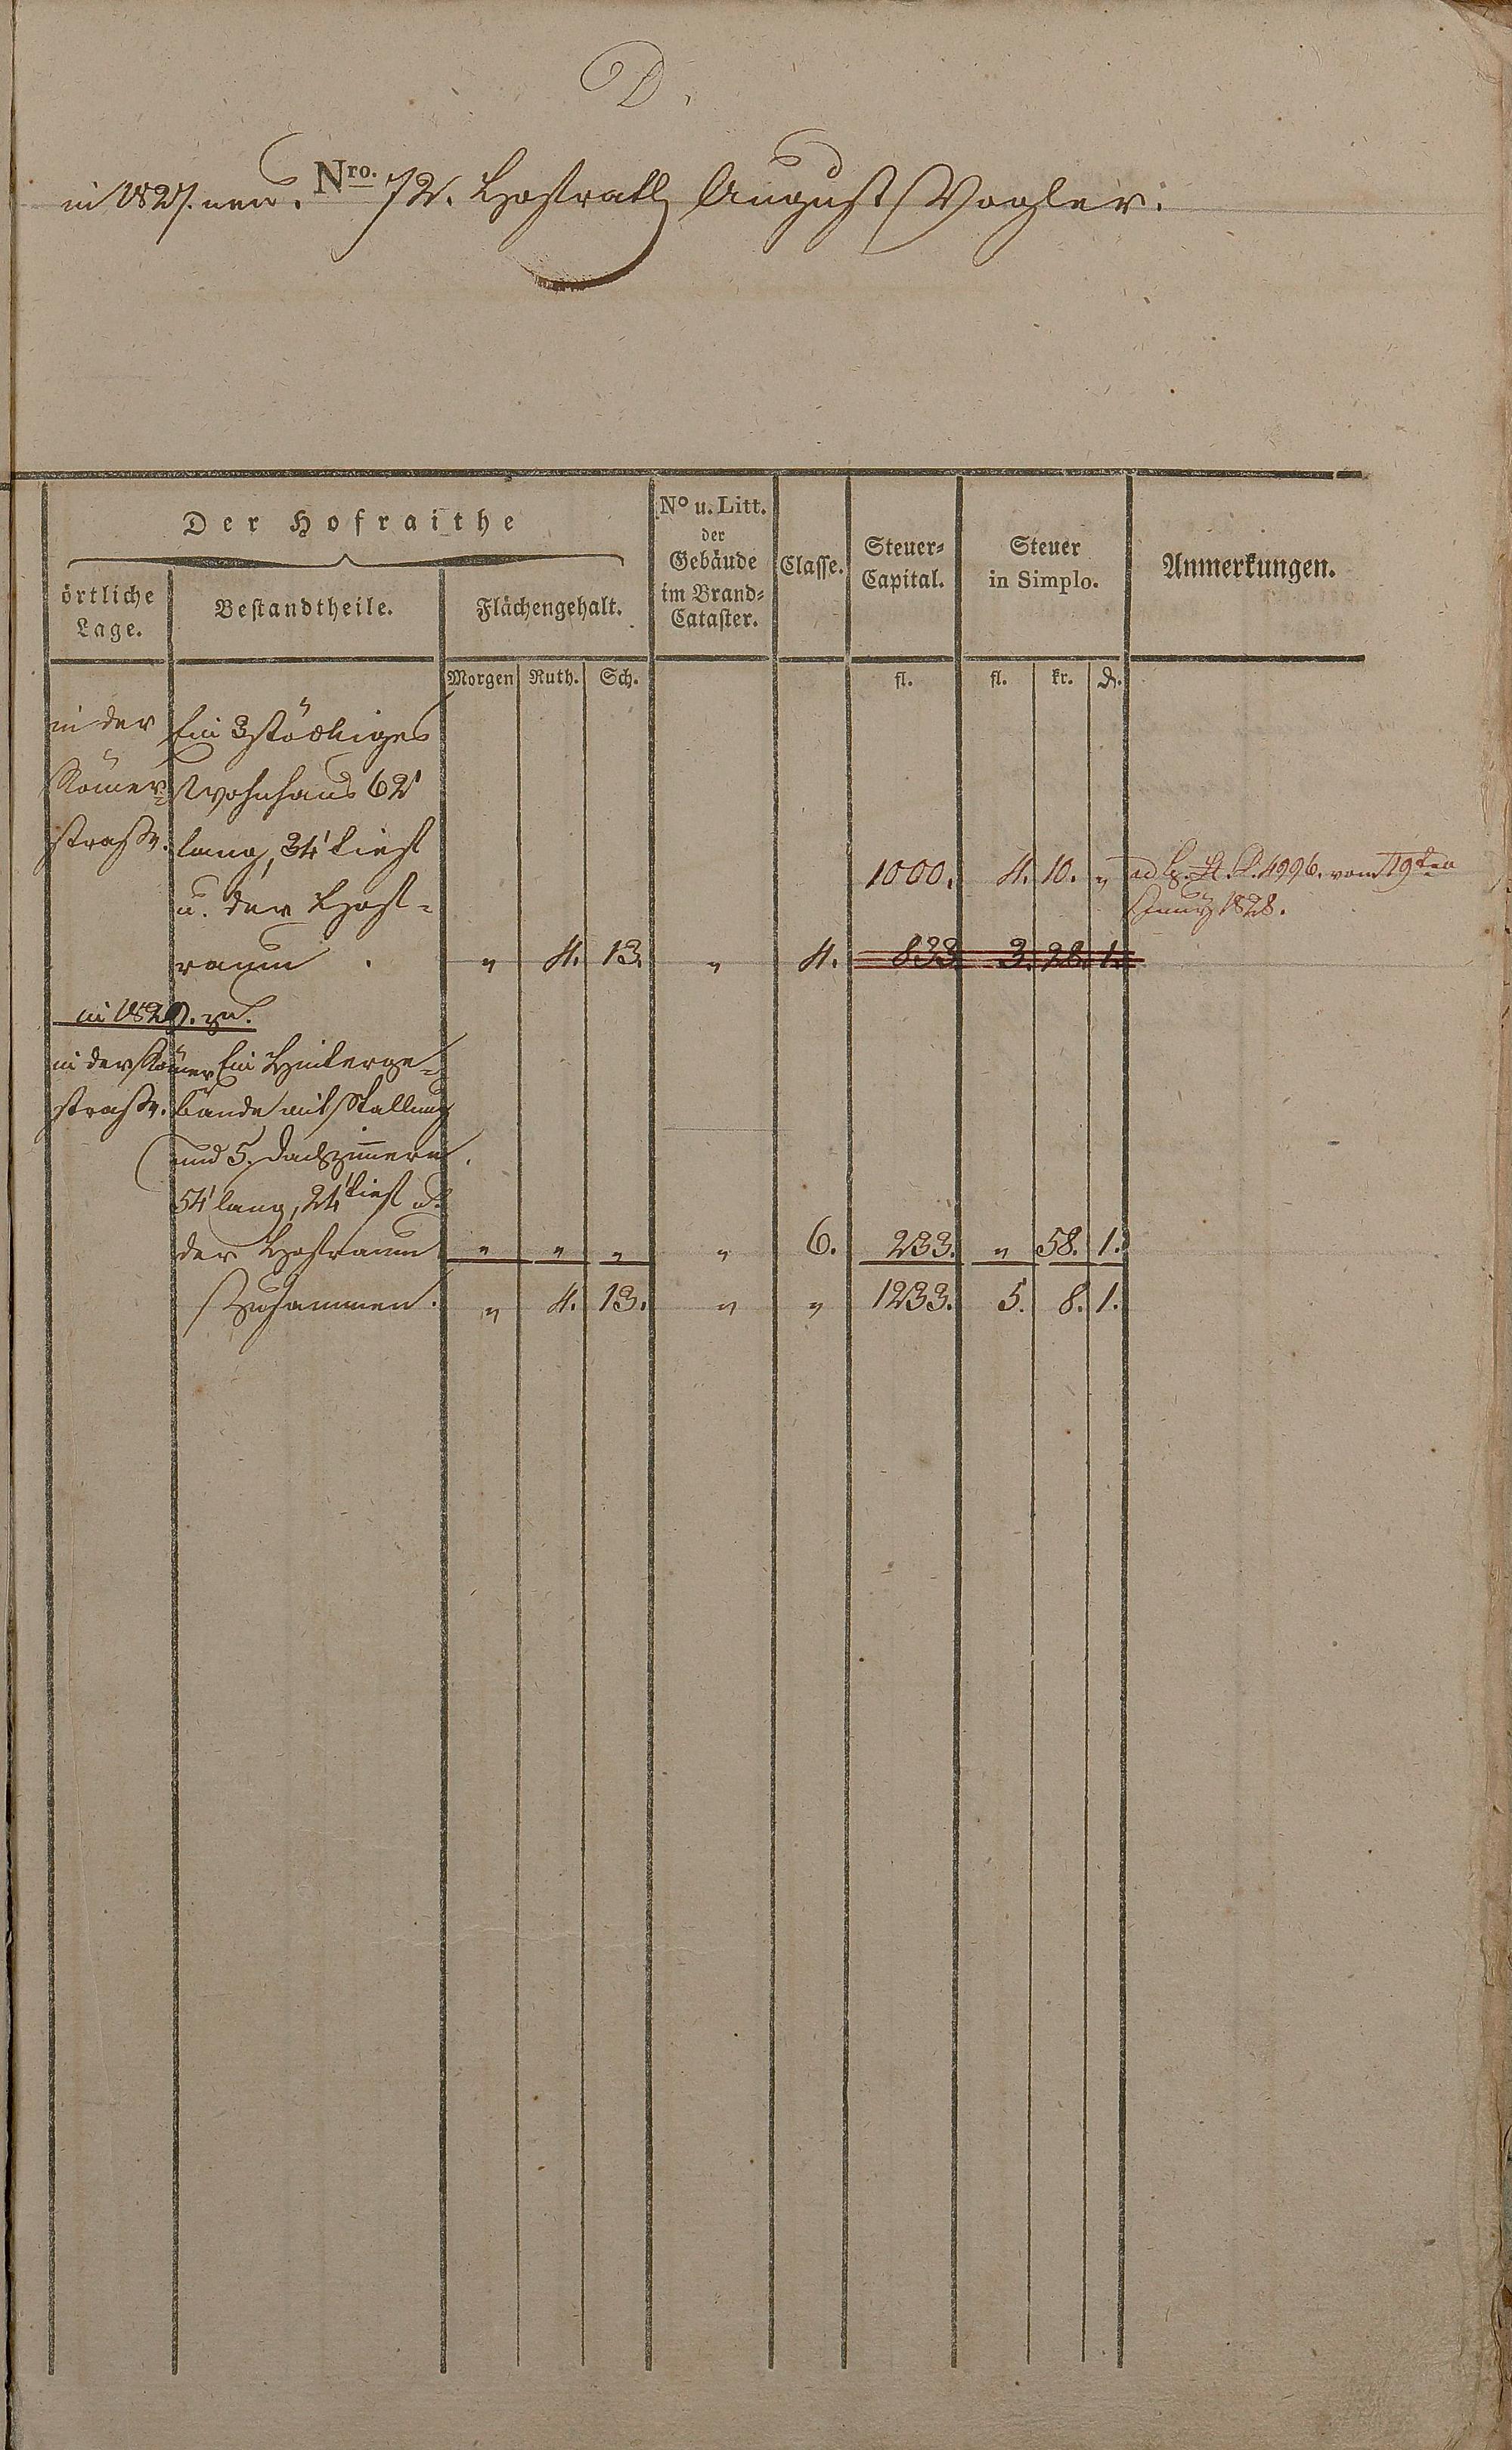 D.
in 1827. neu. Nro. 72. Hofrath August Vogler.
Der Hofraithe
örtliche Lage.
Bestandtheile.
Flächengehalt.
No u. Litt. der Gebäude im Brand-Cataster.
Classe.
Steuer-Capital.
Steuer in Simplo.
Anmerkungen.
Morgen Ruth. Sch. fl. fl. kr. d.
in der Ein 3stöckiges
Römer- Wohnhaus 62'
straße. lang, 34' tief
1000. 4. 10. „ vom 19ten
u. der Hof-
1828.
raum . „ 4. 13. „ 4. 833. 3. 28. 1.
in 1829. zu.
in der Römer Ein Hinterge-
straße. bäude mit Stallung
und 5. Dachzimmern.
54' lang, 24' tief u.
der Hofraum „ „ „ „ 6. 233. „ 58. 1.
Zusammen. „ 4. 13. „ „ 1233. 5. 8. 1.